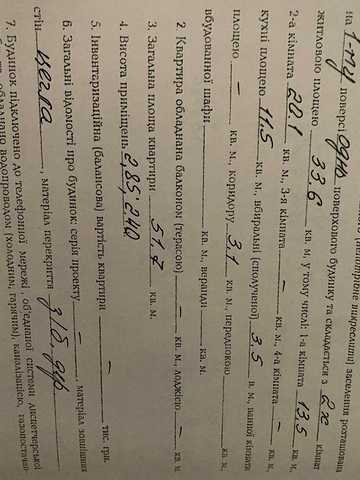 на 1-му поверсі одно поверхового будинку та складається з 2х кімнат
житловою площею 33.6 кв. м, у тому числі: 1-а кімната 13,5 кв. м,
2-а кімната 20.1 кв. м., 3-я кімната — кв. м., 4-а кімната — кв. м,
кухні площею 11.5 кв. м., вбиральні (сполученої) 3,5 в. м., ванної кімнати
площею — кв. м., коридору 3,1 кв. м., передпокою кв. м.,
вбудованної шафи кв. м., веранди кв. м.
2 Квартира обладнана балконом (терасою) — кв м., лоджією. — кв. м
3. Загальна площа квартири 51,7 кв. м.
4. Висота приміщень 2,85; 2.40
5. Інвентаризаційна (балансова) вартість квартири — тис. грн.
6. Загальні відомості про будинок: серія проекту —, матеріал зовнішніх
стін цегла, матеріал перекриття з/б, дер
7. Будинок підключено до телефонної мережі, об'єднаної системи диспетчерської
обладнано водопроводом (холодним, гарячим), каналізацією, газопостачан